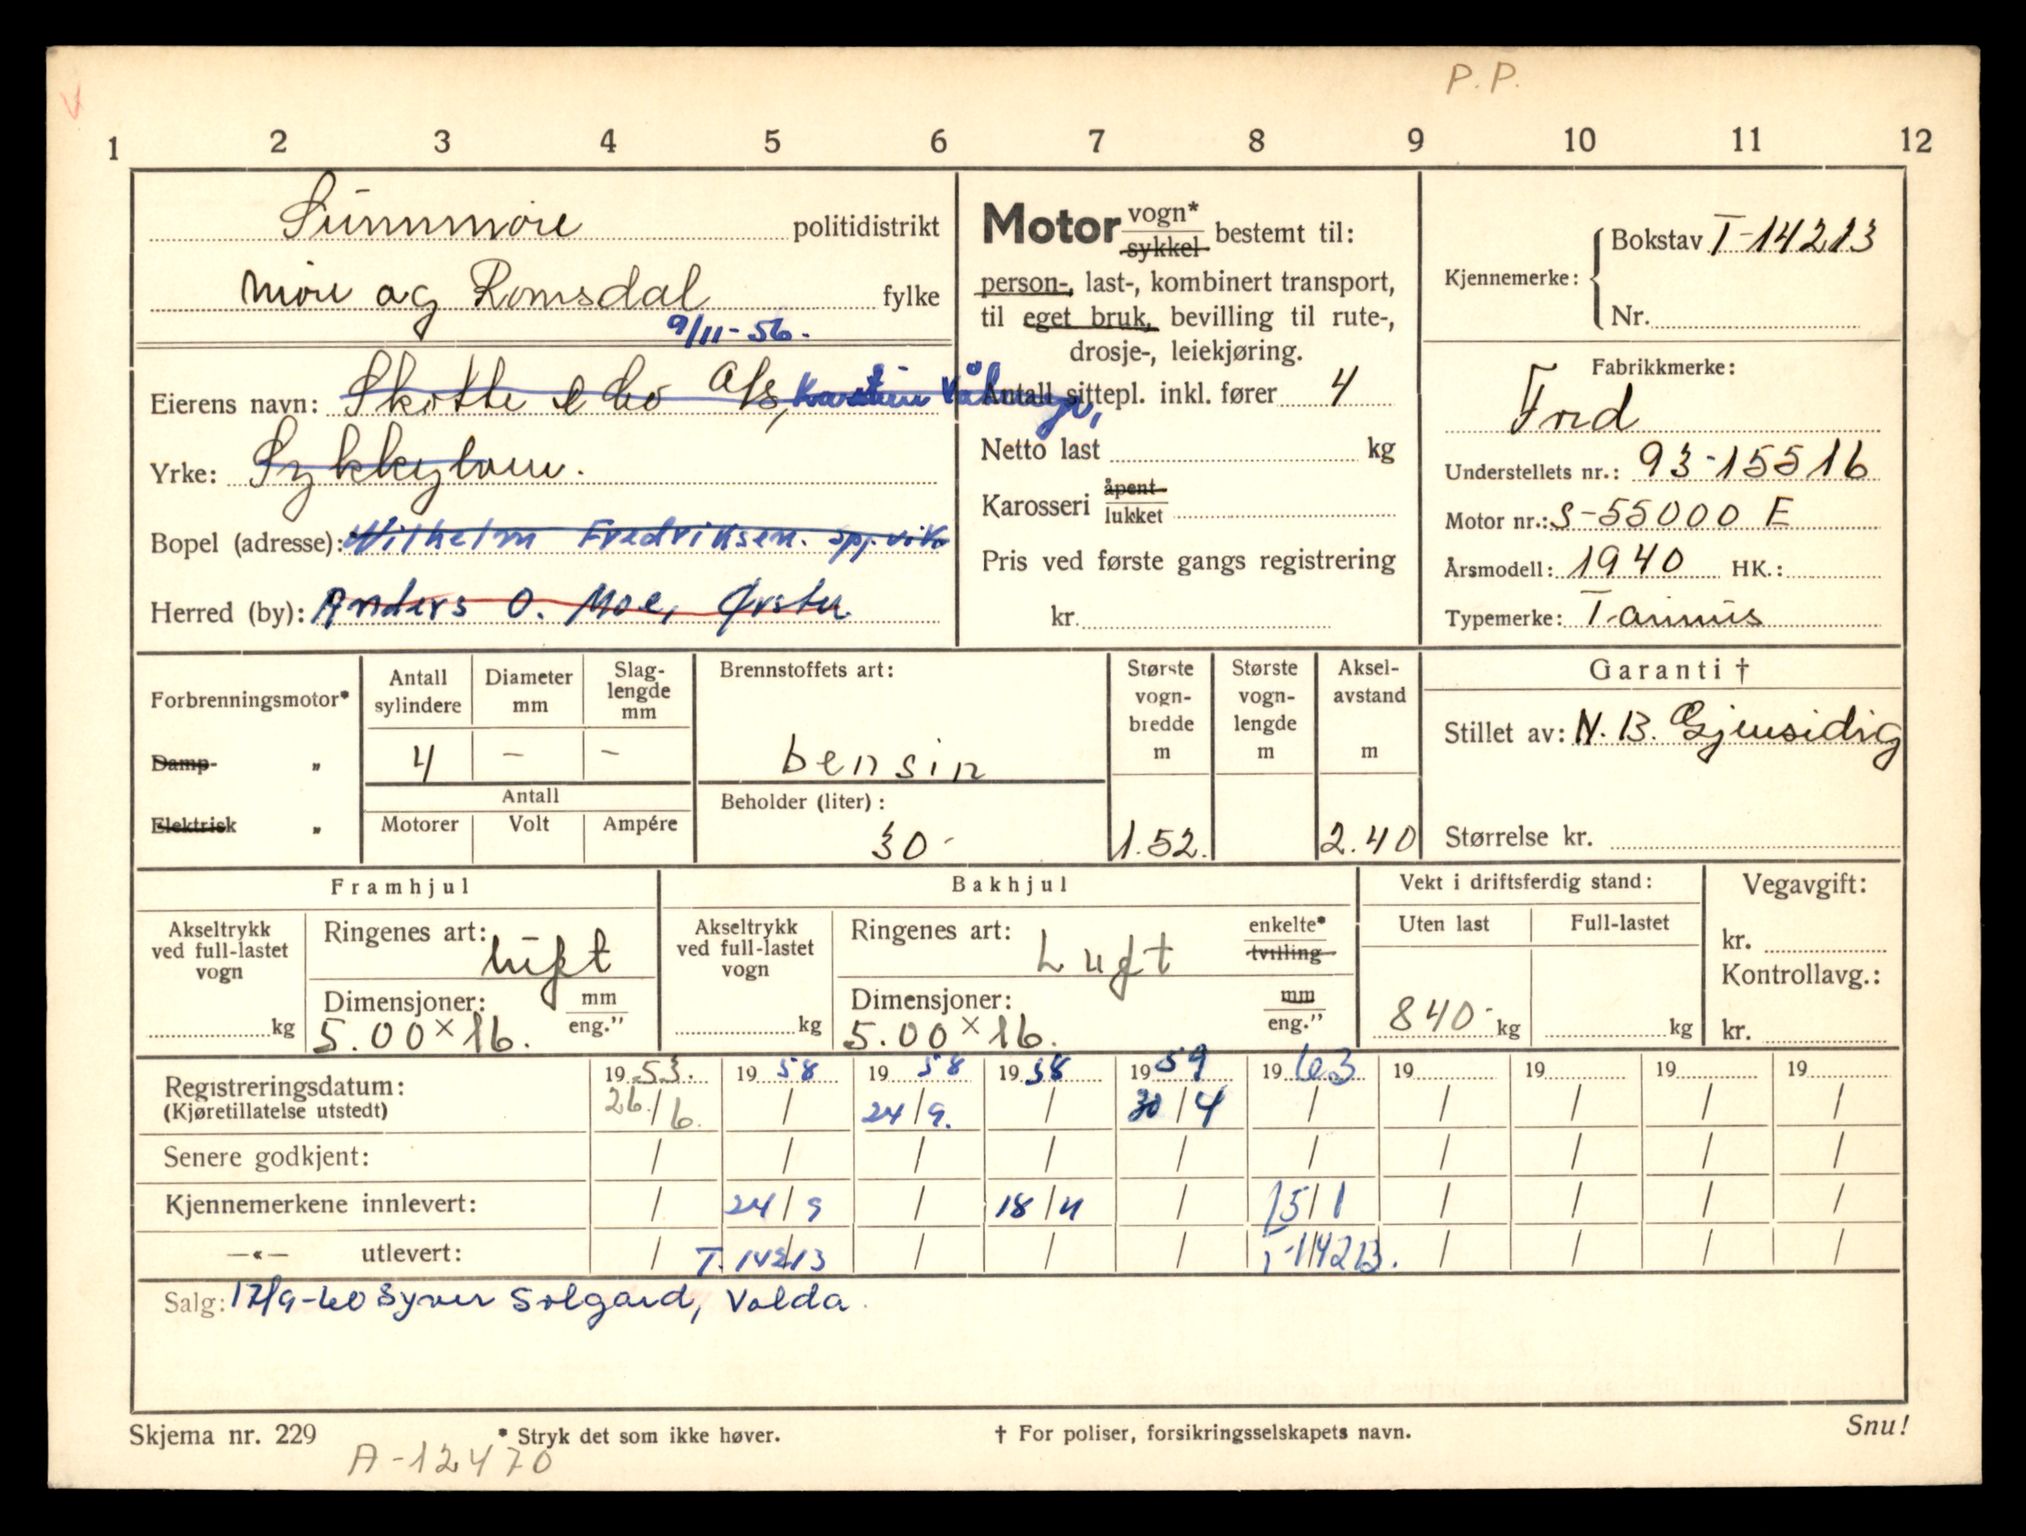 P. P.
1 2 3 4 5 6 7 8 9 10 11 12
Sunnmøre politidistrikt
Møre og Romsdal fylke
9/11-56.
Eierens navn: Skotte & Co A/s,
Yrke: Sykkylven.
Bopel (adresse): Wilhelm Fredriksen.
Herred (by): Anders O. Moe, Ørsta
Motor vogn* sykkel bestemt til:
person-, last-, kombinert transport,
til eget bruk, bevilling til rute-,
drosje-, leiekjøring.
Antall sittepl. inkl. fører 4
Netto last kg
Karosseri åpent lukket
Pris ved første gangs registrering
kr.
Kjennemerke: Bokstav T-14213
Nr.
Fabrikkmerke:
Ford
Understellets nr.: 93-15516
Motor nr.: S-55000 E
Årsmodell: 1940 HK.:
Typemerke: Taunus
Forbrenningsmotor*
Damp- „
Elektrisk „
Antall sylindere
4
Diameter mm
–
Slag-lengde mm
–
Antall
Motorer Volt Ampére
Brennstoffets art:
bensin
Beholder (liter):
30-
Største vogn-bredde m
1.52.
Største vogn-lengde m
Aksel-avstand m
2.40
Garanti †
Stillet av: N. B. Gjensidig
Størrelse kr.
Framhjul
Akseltrykk ved full-lastet vogn
kg
Ringenes art: luft
Dimensjoner: mm eng.”
5.00 × 16.
Bakhjul
Akseltrykk ved full-lastet vogn
kg
Ringenes art: Luft enkelte* tvilling
Dimensjoner: mm eng.”
5.00 × 16.
Vekt i driftsferdig stand:
Uten last Full-lastet
840- kg kg
Vegavgift:
kr.
Kontrollavg.:
kr.
Registreringsdatum: 1953. 1958 1958 1958 1959 1963 19 19 19 19
(Kjøretillatelse utstedt) 26/6. / 24/9. / 30/4 / / / / /
Senere godkjent: / / / / / / / / / /
Kjennemerkene innlevert: / 24/9 / 18/11 / 15/1 / / / /
—«— utlevert: / T.14213 / / / T-14213. / / / /
Salg: 17/9-60 Syver Solgard, Volda.
Skjema nr. 229
* Stryk det som ikke høver.
† For poliser, forsikringsselskapets navn.
Snu!
A-12470